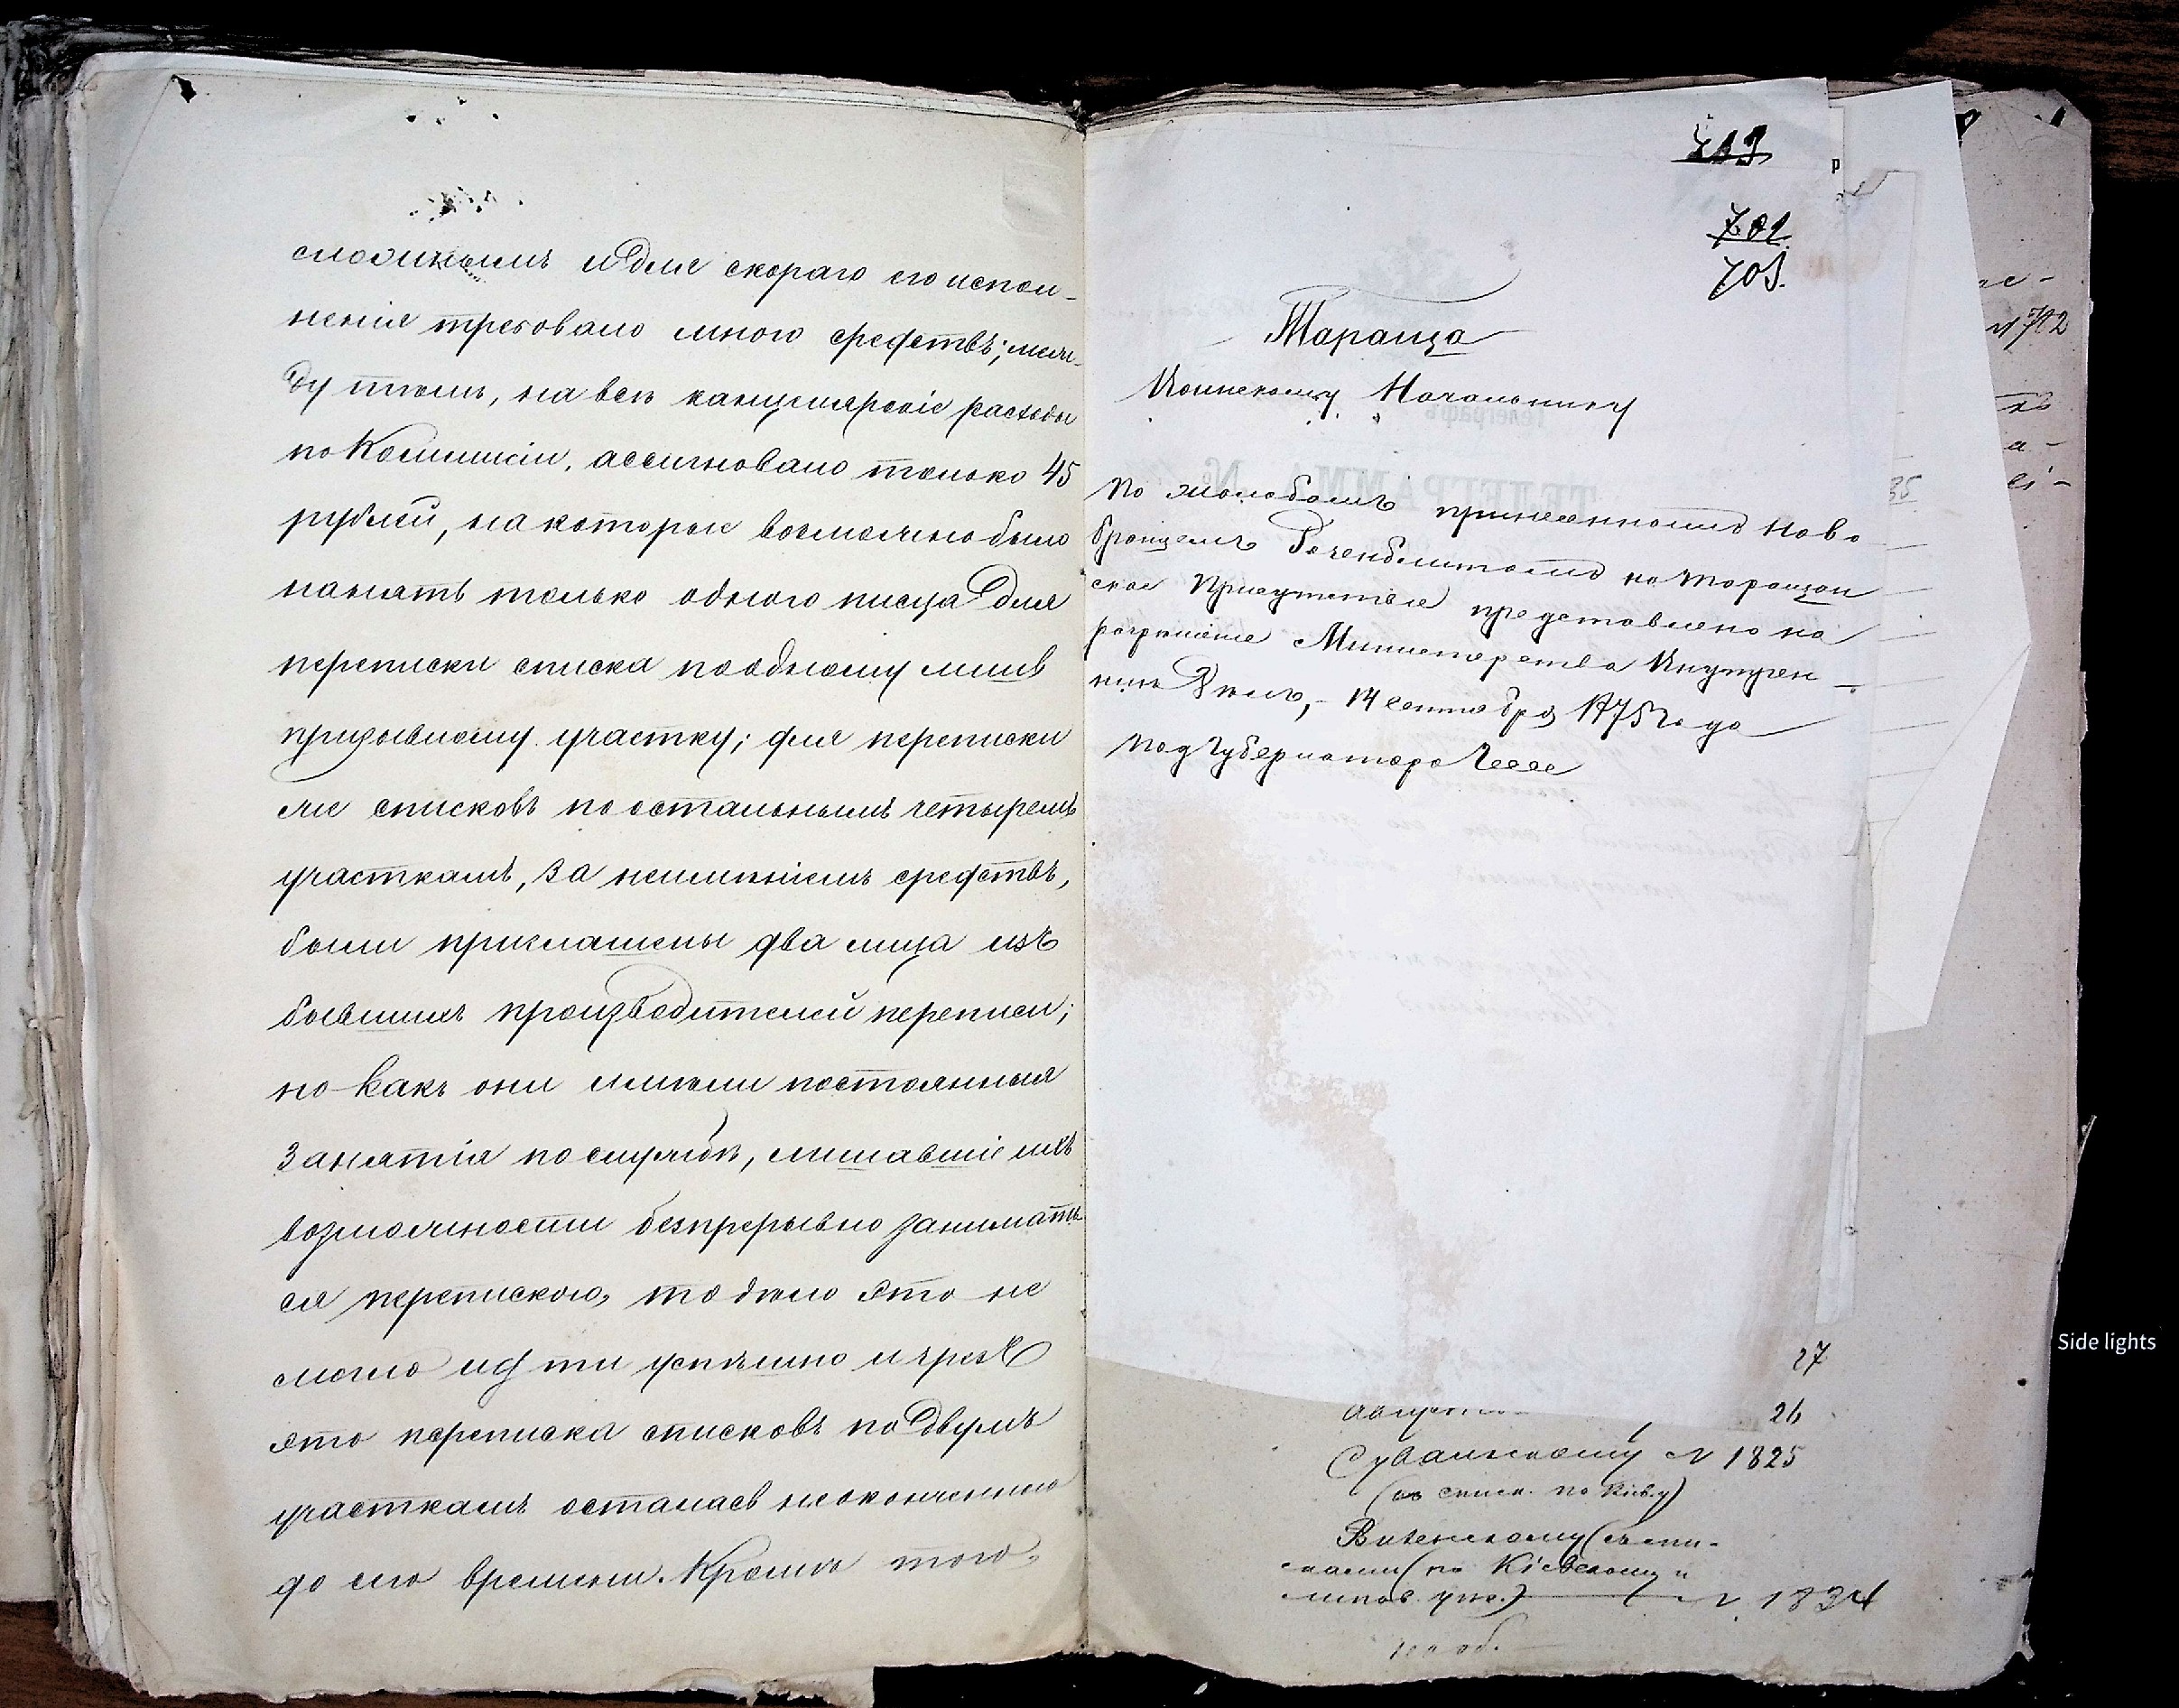 сложнымъ и для скораго его испол-
ненія требовало много средствъ; меж-
ду тѣмъ, на всѣ канцелярскіе расходы
по Коммисіи, ассигновано только 45
рублей, на которые возможно было
нанять только одного писца для
переписки списка по одному лишь
призывному участку; для переписки
же списковъ по остальнымъ четыремъ
участкамъ, за неимѣніемъ средствъ,
были приглашены два лица изъ
бывшихъ производителей переписи;
но какъ они имѣли постоянныя
занятія по службѣ, лишавшіе ихъ
возможности безпрерывно занимать-
ся перепискою, то дѣло это не
могло идти успѣшно и чрезъ
это переписка списковъ по двумъ
участкамъ осталась неоконченною
до сего времени. Кромѣ того,
713
701
703.
Тараща
Воинскому Начальнику
По жалобамъ принесеннымъ Ново
браицемъ на Таращан
ское Присутствіе представлено на
разрѣшеніе Министерства Внутрен
нихъ Дѣлъ, - 14 сентября 1875 года
За Губернатора Гессе
ТЕЛЕГРАММА №
№ 702
35
27
26
Сувалкскому № 1825
(со списк. по Кіеву)
Виленскому (съ спи-
сками (по Кіевскому и
липов. уѣз.) № 1834
100 об.
Side lights